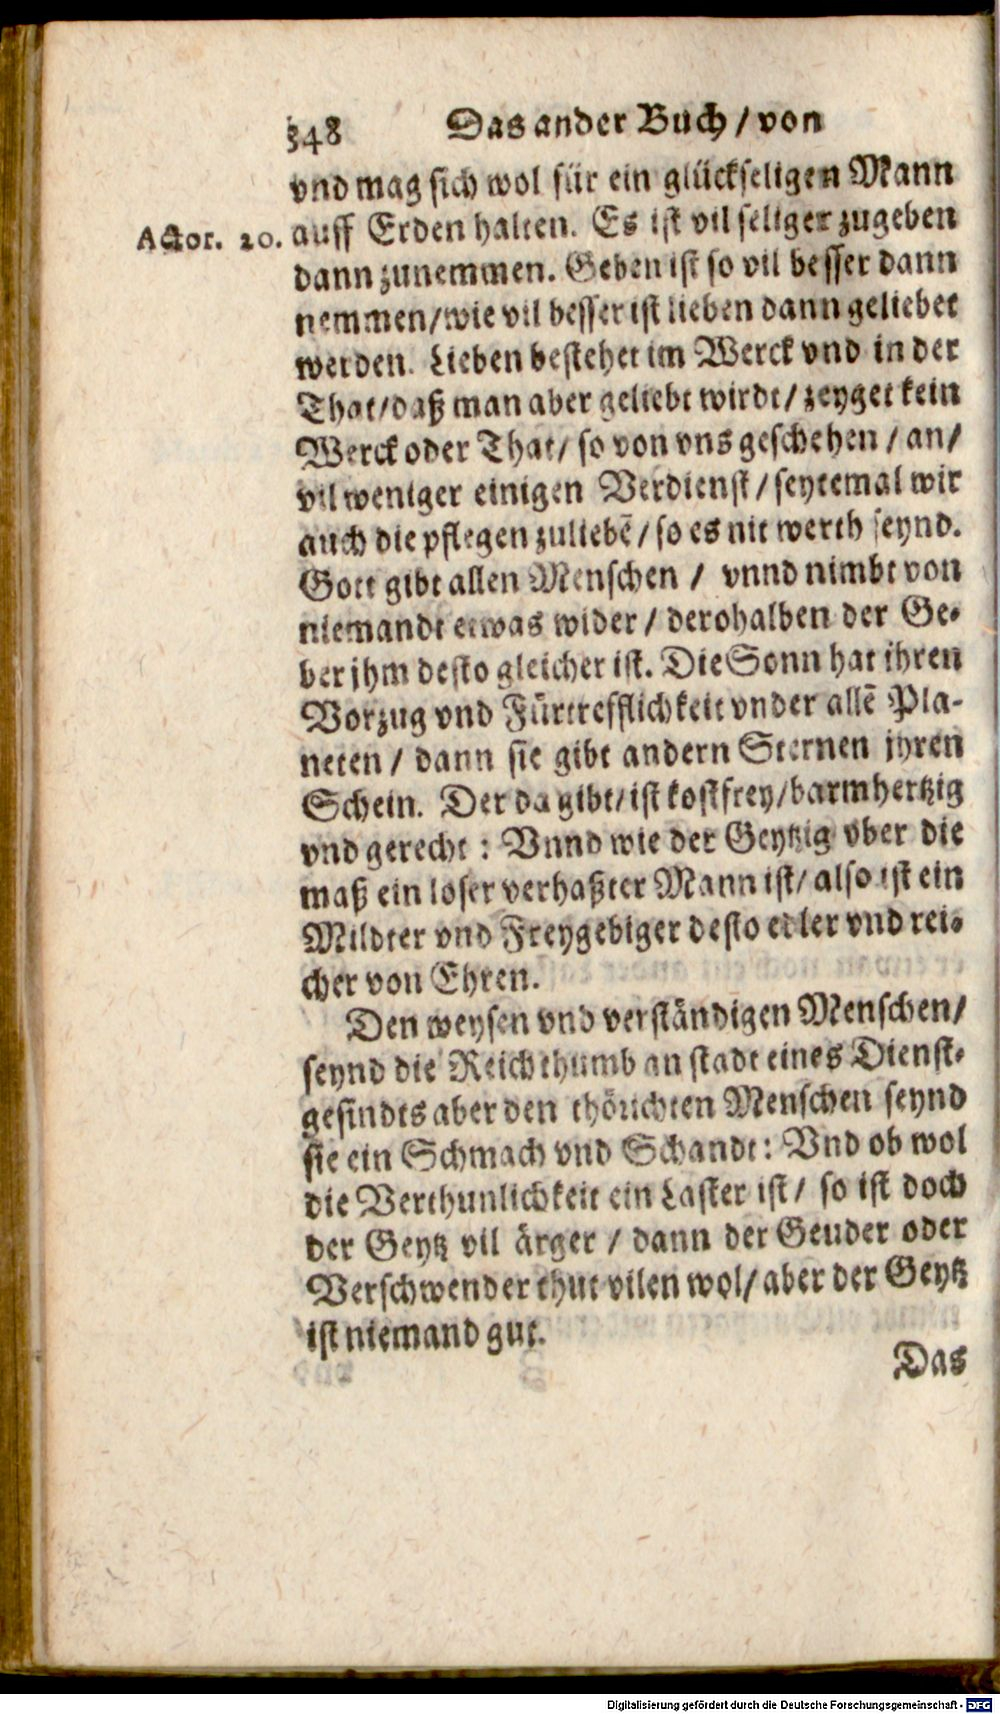 348 Das ander Buch / von
vnd mag sich wol für ein glückseligen Mann
Actor. 20. auff Erden halten. Es ist vil seliger zugeben
dann zunemmen. Geben ist so vil besser dann
nemmen/wie vil besser ist lieben dann geliebet
werden. Lieben bestehet im Werck vnd in der
That/daß man aber geliebt wirdt/zeyget kein
Werck oder That/ so von vns geschehen / an/
vil weniger einigen Verdienst / seytemal wir
auch die pflegen zuliebẽ / so es nit werth seynd.
Gott gibt allen Menschen / vnnd nimbt von
niemandt etwas wider / derohalben der Ge-
ber jhm desto gleicher ist. Die Sonn hat ihren
Vorzug vnd Fürtrefflichkeit vnder allẽ Pla-
neten / dann sie gibt andern Sternen jhren
Schein. Der da gibt/ist kostfrey/barmhertzig
vnd gerecht : Vnnd wie der Geytzig vber die
maß ein loser verhaßter Mann ist/ also ist ein
Mildter vnd Freygebiger desto edler vnd rei-
cher von Ehren.
Den weysen vnd verständigen Menschen/
seynd die Reichthumb an stadt eines Dienst-
gesindts aber den thörichten Menschen seynd
sie ein Schmach vnd Schandt: Vnd ob wol
die Verthunlichkeit ein Laster ist/ so ist doch
der Geytz vil ärger / dann der Geuder oder
Verschwender thut vilen wol/ aber der Geytz
ist niemand gut.
Das
Digitalisierung gefördert durch die Deutsche Forschungsgemeinschaft - DFG